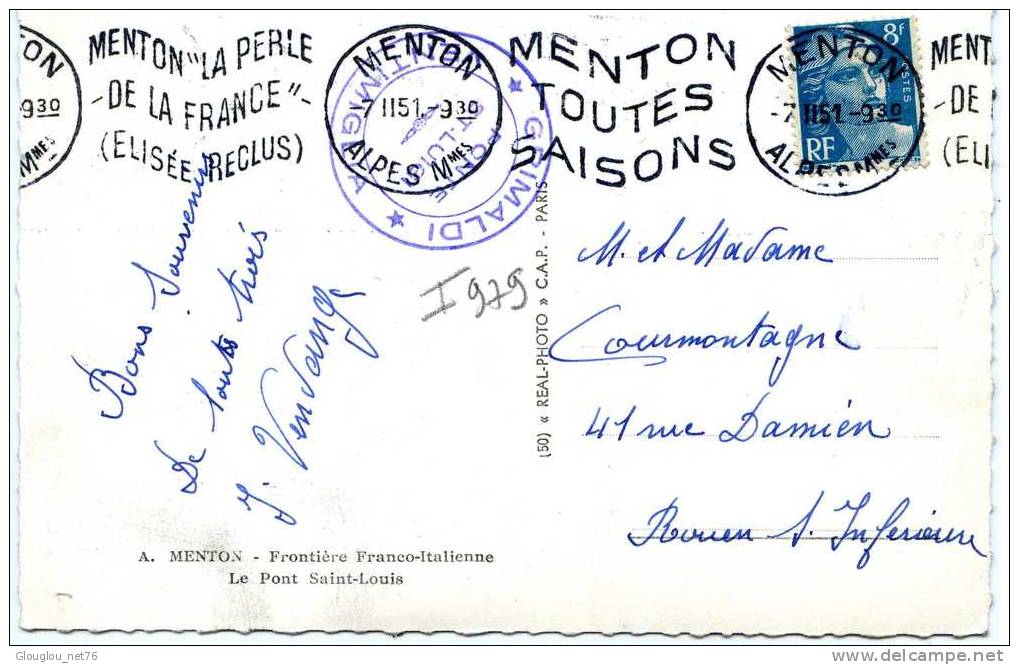 MENTON
9 30
MENTON "LA PERLE
- DE LA FRANCE" -
(ELISÉE RECLUS)
MENTON
-7 II 51 - 9 30
ALPES Mmes
MENTON
TOUTES
SAISONS
MENTON
-7 II 51 - 9 30
ALPES Mmes
8f
POSTES
RF
MENT
- DE
(ELI
★ GRIMALDI ★ VENTIMIGLIA
PONTE
ST. LUIGI
Bons Souvenirs
De toutes trois
y. Vendange
I 979
(50) « REAL-PHOTO » C.A.P. - PARIS
M. et Madame
Courmontagne
41 rue Damien
Rouen S. Inferieure
A. MENTON - Frontière Franco-Italienne
Le Pont Saint-Louis
Glouglou_net76
www.delcampe.net